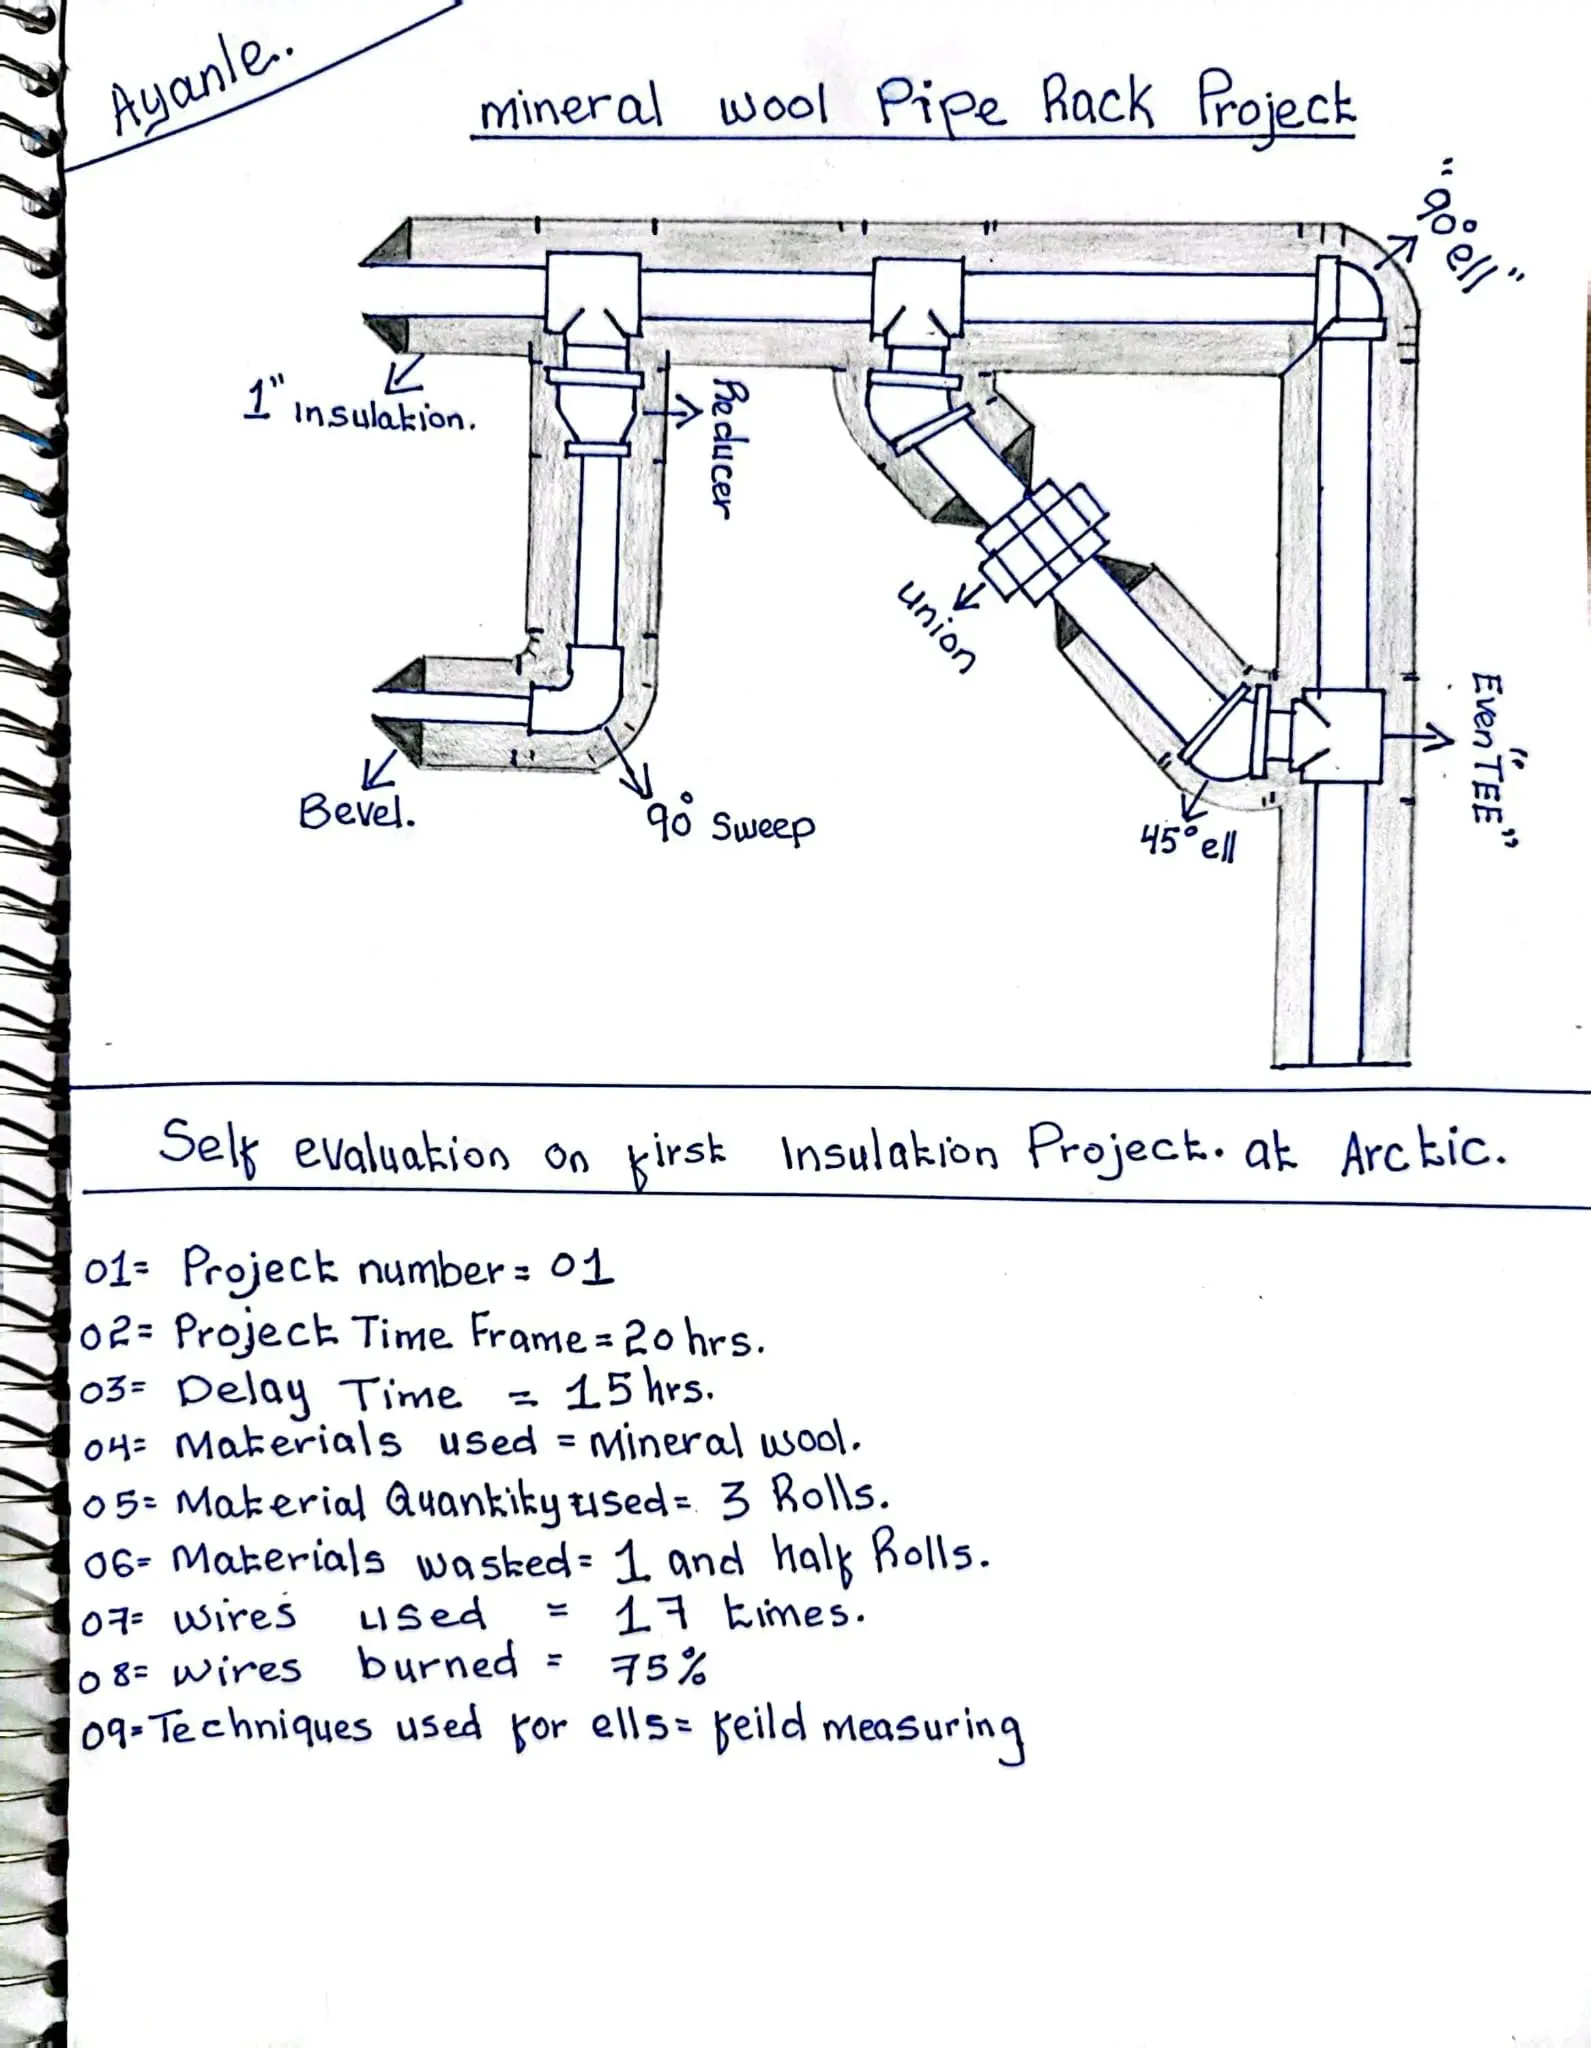 Ayanle..
mineral wool Pipe Rack Project
"90° ell"
1" insulation.
Reducer
union
"Even TEE"
Bevel.
90° Sweep
45° ell
Self evaluation on first Insulation Project. at Arctic.
01= Project number = 01
02= Project Time Frame = 20 hrs.
03= Delay Time = 15 hrs.
04= Materials used = Mineral wool.
05= Material Quantity used = 3 Rolls.
06= Materials wasted = 1 and half Rolls.
07= wires used = 17 times.
08= wires burned = 75%
09= Techniques used for ells = feild measuring